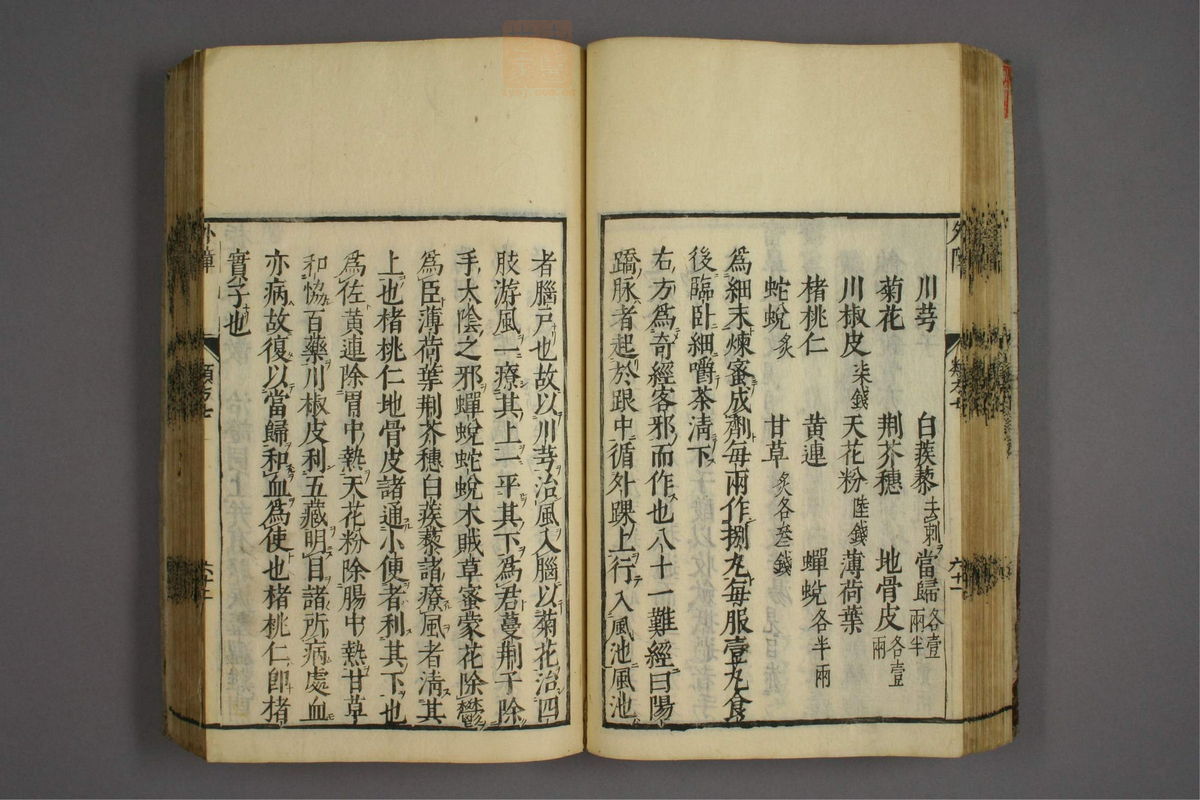 川芎 白蒺藜去刺 當歸各壹兩半
菊花 荆芥穗 地骨皮各壹兩
川椒皮柒錢 天花粉陸錢 薄荷葉
楮桃仁 黄連 蟬蛻各半兩
蛇蛻炙 甘草炙各叁錢
爲細末煉蜜成劑每兩作捌丸每服壹丸食
後臨卧細嚼茶清下
右方爲奇經客邪而作也八十一難經曰陽
蹻脉者起於跟中循外踝上行入風池風池
者腦戸也故以川芎治風入腦以菊花治四
肢游風一療其上一平其下爲君蔓荆子除
手太陰之邪蟬蛻蛇蛻木賊草蜜蒙花除鬱
爲臣薄荷葉荆芥穗白蒺藜諸療風者清其
上也楮桃仁地骨皮諸通小便者利其下也
爲佐黄連除胃中熱天花粉除腸中熱甘草
和恊百藥川椒皮利五藏明目諸所病處血
亦病故復以當歸和血爲使也楮桃仁卽楮
實子也